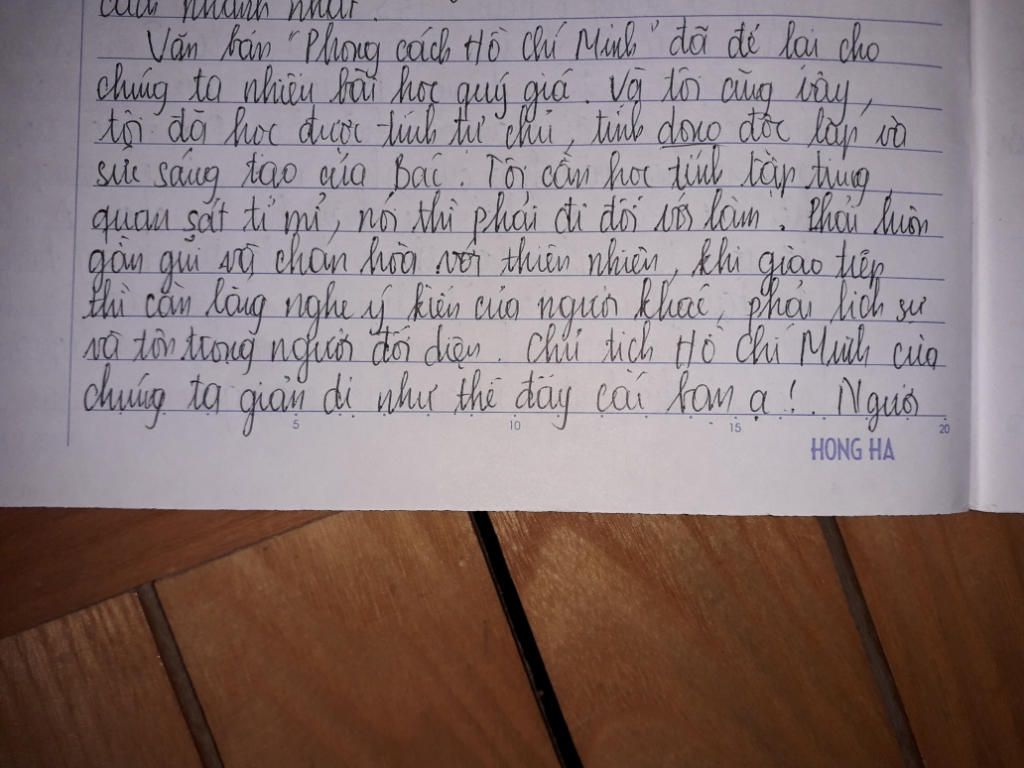 của nhanh nhất.
Văn bản "Phong cách Hồ Chí Minh" đã để lại cho
chúng ta nhiều bài học quý giá. Và tôi cũng vậy,
tôi đã học được tính tự chủ, tính dong độc lập và
sức sáng tạo của Bác. Tôi cần học tính tập trung,
quan sát tỉ mỉ, nói thì phải đi đối với làm. Phải luôn
gần gũi và chan hòa với thiên nhiên, khi giao tiếp
thì cần lắng nghe ý kiến của người khác, phải lịch sự
và tôn trọng người đối diện. Chủ tịch Hồ Chí Minh của
chúng ta giản dị như thế đấy các bạn ạ!. Người
5 10 15 20
HONG HA